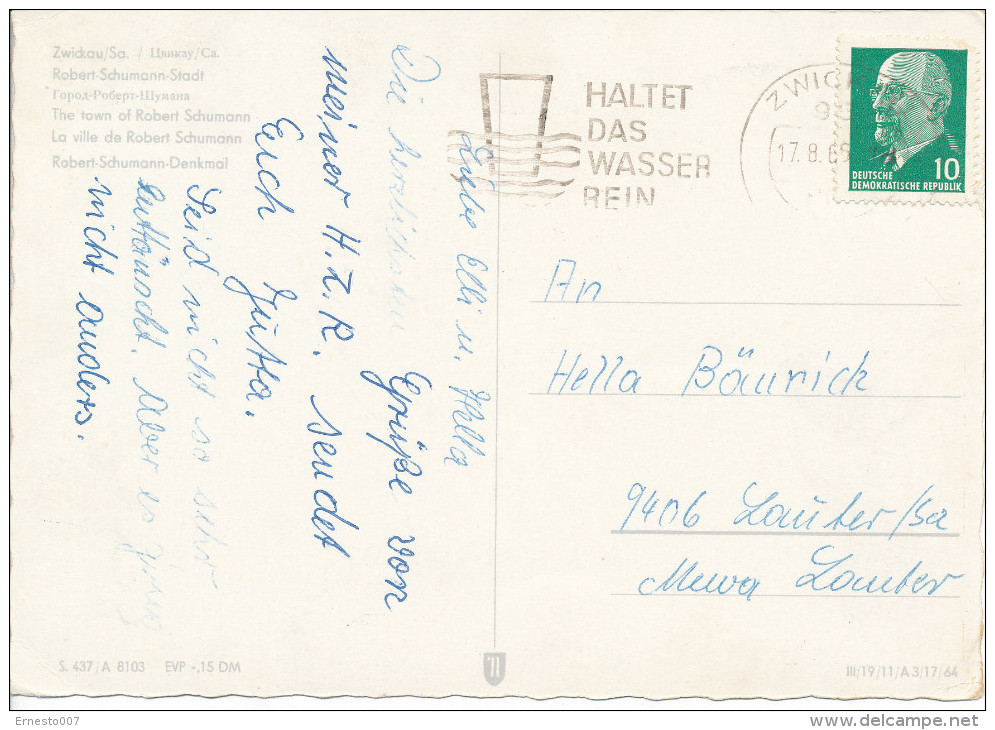 Zwickau/Sa. / Цвикау/Са.
Robert-Schumann-Stadt
Город-Роберт-Шумана
The town of Robert Schumann
La ville de Robert Schumann
Robert-Schumann-Denkmal
HALTET
DAS
WASSER
REIN
ZWICK
17.8.65
DEUTSCHE
DEMOKRATISCHE REPUBLIK
10
Liebe Elli u. Hella
Die herzlichsten Grüße von
meiner H.Z.R. sendet
Euch Jutta.
Seid nicht so sehr
enttäuscht. Aber es ging
nicht anders.
An
Hella Bäurick
9406 Lauter/Sa
Mewa Lauter
S. 437/A 8103 EVP -,15 DM
III/19/11/A 3/17/64
Ernesto007
delcampe.net